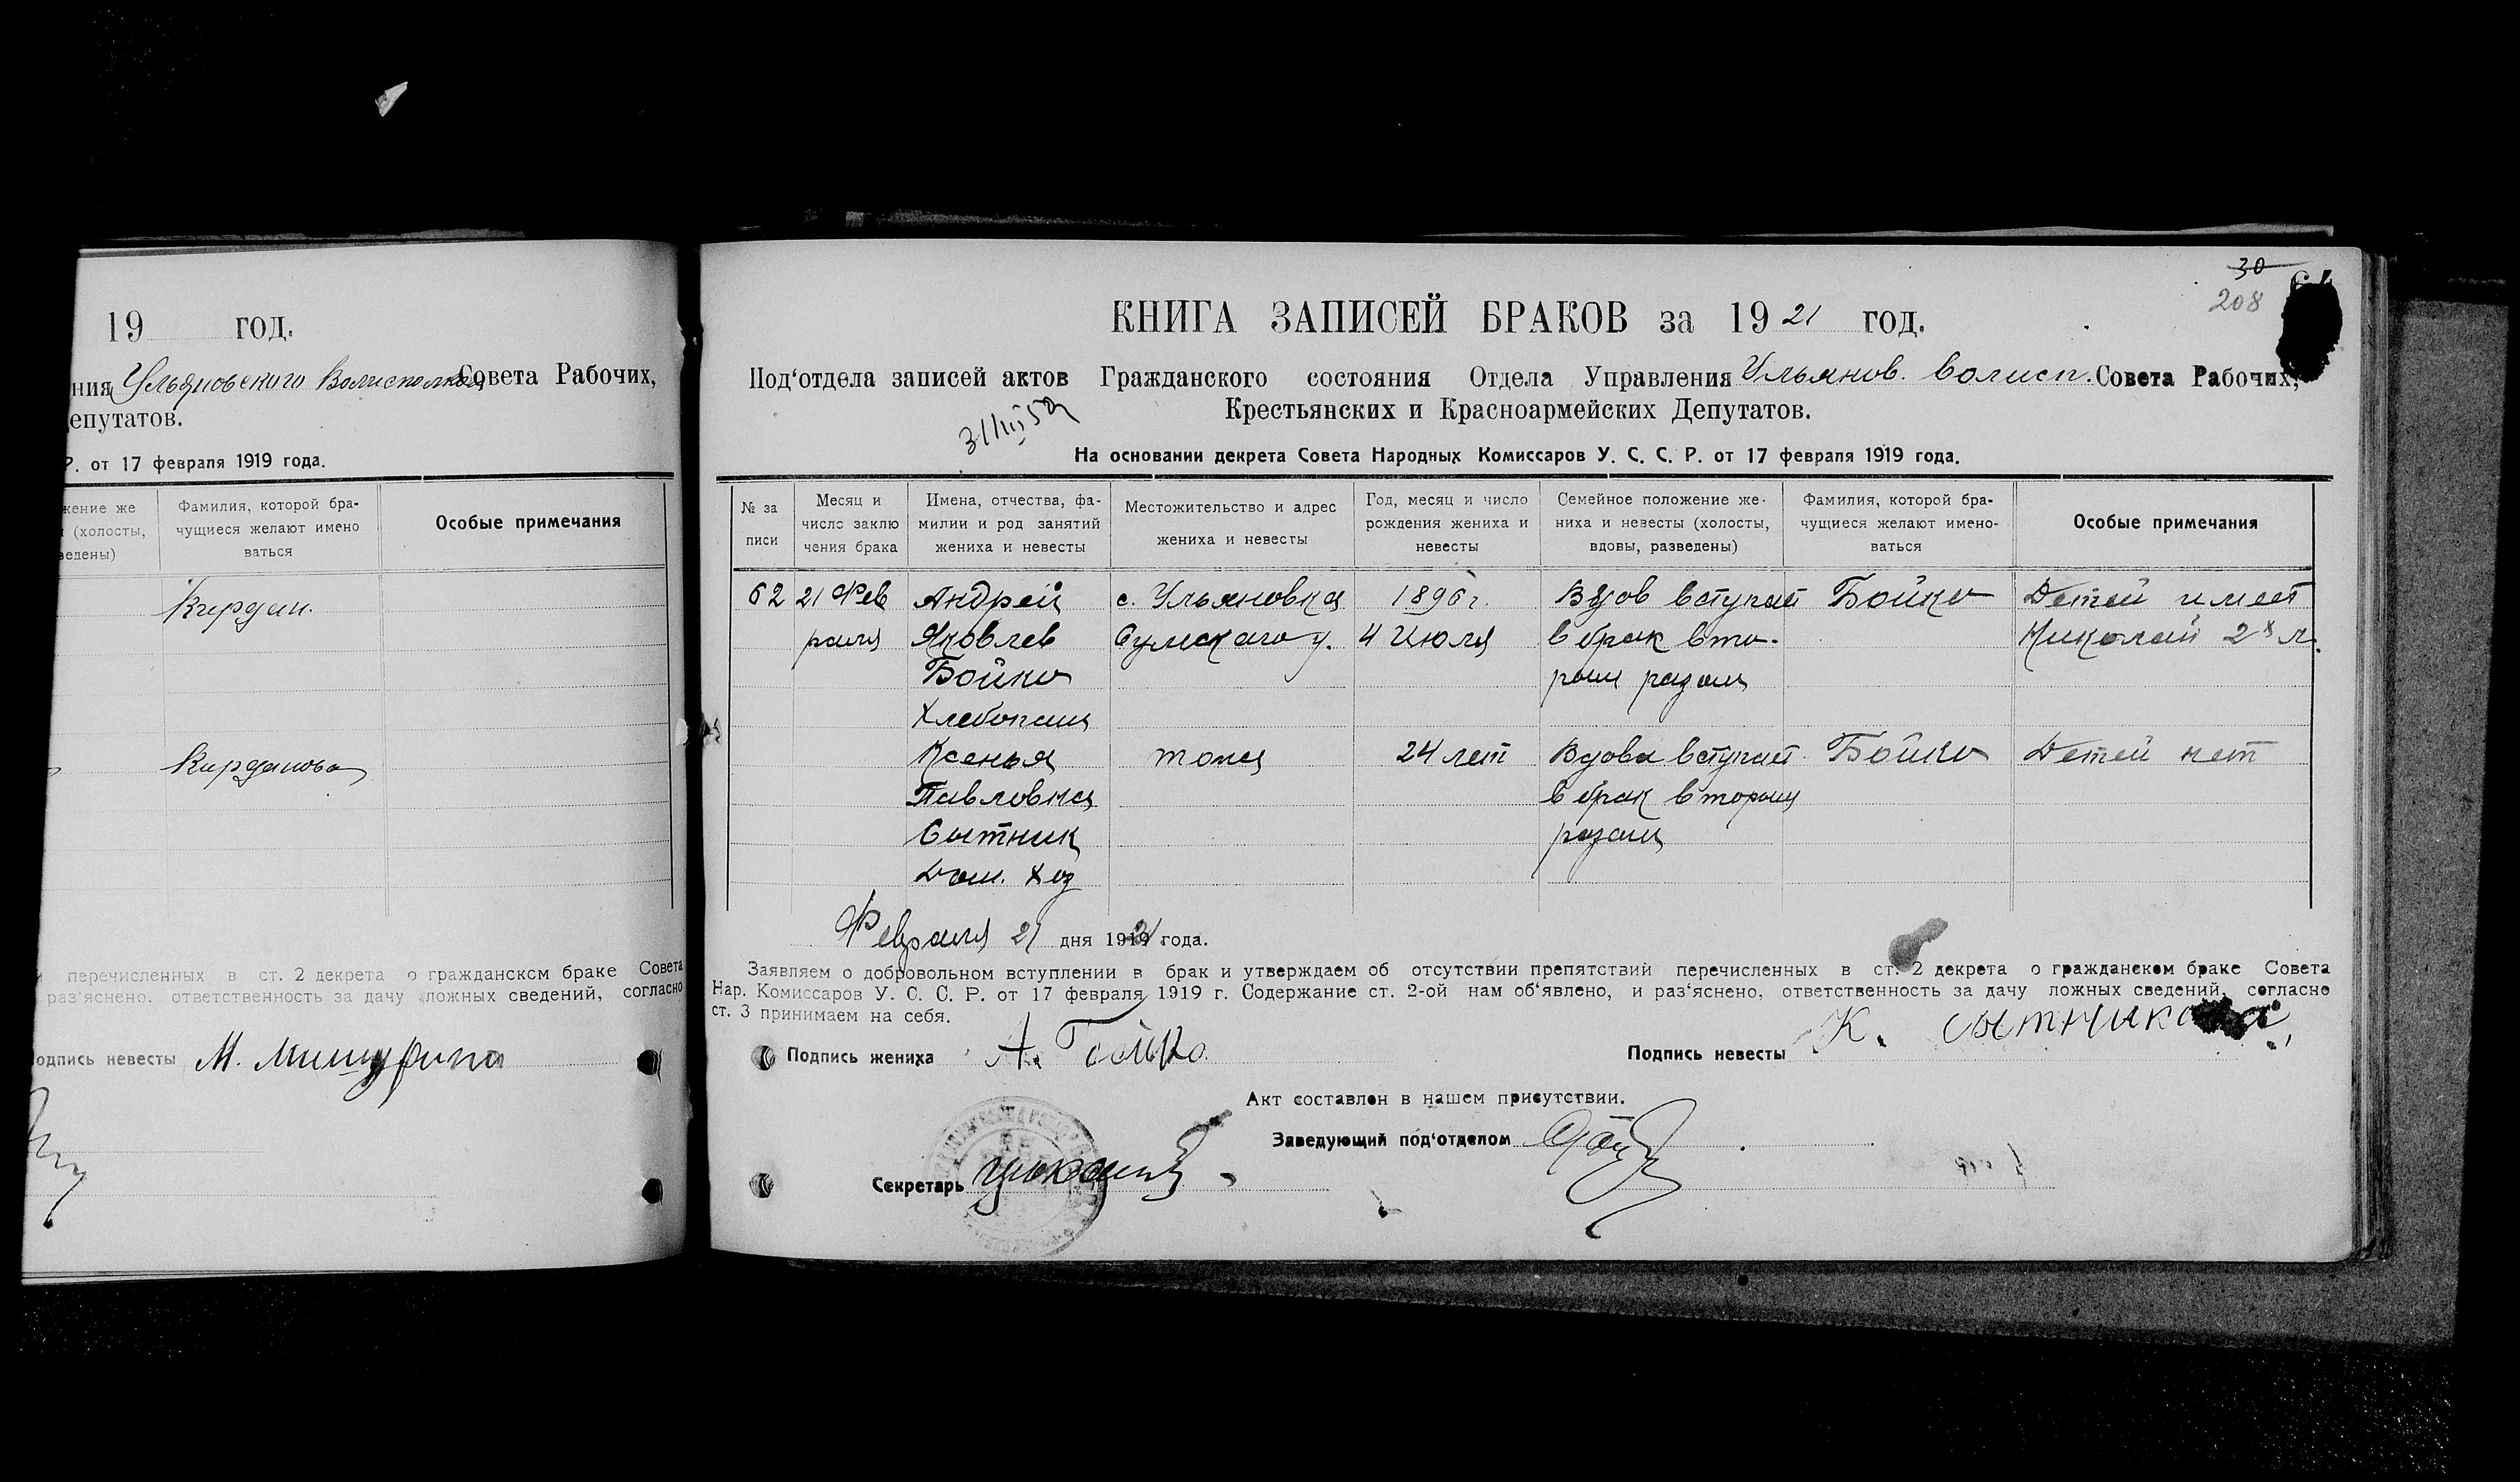 19 год.
ния Ульяновского Волисполком Совета Рабочих,
епутатов.
Р. от 17 февраля 1919 года.
жение же
(холосты,
ведены)
Фамилия, которой бра-
чущиеся желают имено
ваться
Особые примечания
Кирдан.
Кирданова
перечисленных в ст. 2 декрета о гражданском браке Совета
раз‘яснено. ответственность за дачу ложных сведений, согласно
одпись невесты М. Мишурина
30
208
КНИГА ЗАПИСЕЙ БРАКОВ за 1921 год.
Под‘отдела записей актов Гражданского состояния Отдела Управления Ульянов. волисп. Совета Рабочих,
Крестьянских и Красноармейских Депутатов.
На основании декрета Совета Народных Комиссаров У. С. С. Р. от 17 февраля 1919 года.
№ за
писи
Месяц и
число заклю
чения брака
Имена, отчества, фа-
милии и род занятий
жениха и невесты
Местожительство и адрес
жениха и невесты
Год, месяц и число
рождения жениха и
невесты
Семейное положение же-
ниха и невесты (холосты,
вдовы, разведены)
Фамилия, которой бра-
чущиеся желают имено-
ваться
Особые примечания
62 21 Фев Андрей с. Ульяновка 1896 г. Вдов вступает Бойко Детей имеет
раля Яковлев Сумскаго у. 4 Июля в брак вто- Николай 2х л.
Бойко рым разом
Хлебопаш
Ксенья тоже 24 лет Вдова вступает Бойко Детей нет
Павловна в брак вторым
Сытник разом
Дом. Хоз
Февраля 21 дня 1921 года.
Заявляем о добровольном вступлении в брак и утверждаем об отсутствии препятствий перечисленных в ст. 2 декрета о гражданском браке Совета
Нар. Комиссаров У. С. С. Р. от 17 февраля 1919 г. Содержание ст. 2-ой нам об‘явлено, и раз‘яснено, ответственность за дачу ложных сведений, согласно
ст. 3 принимаем на себя.
Подпись жениха А. Бойко.
Подпись невесты К. Сытникова
Акт составлен в нашем присутствии.
Заведующий под‘отделом
Секретарь